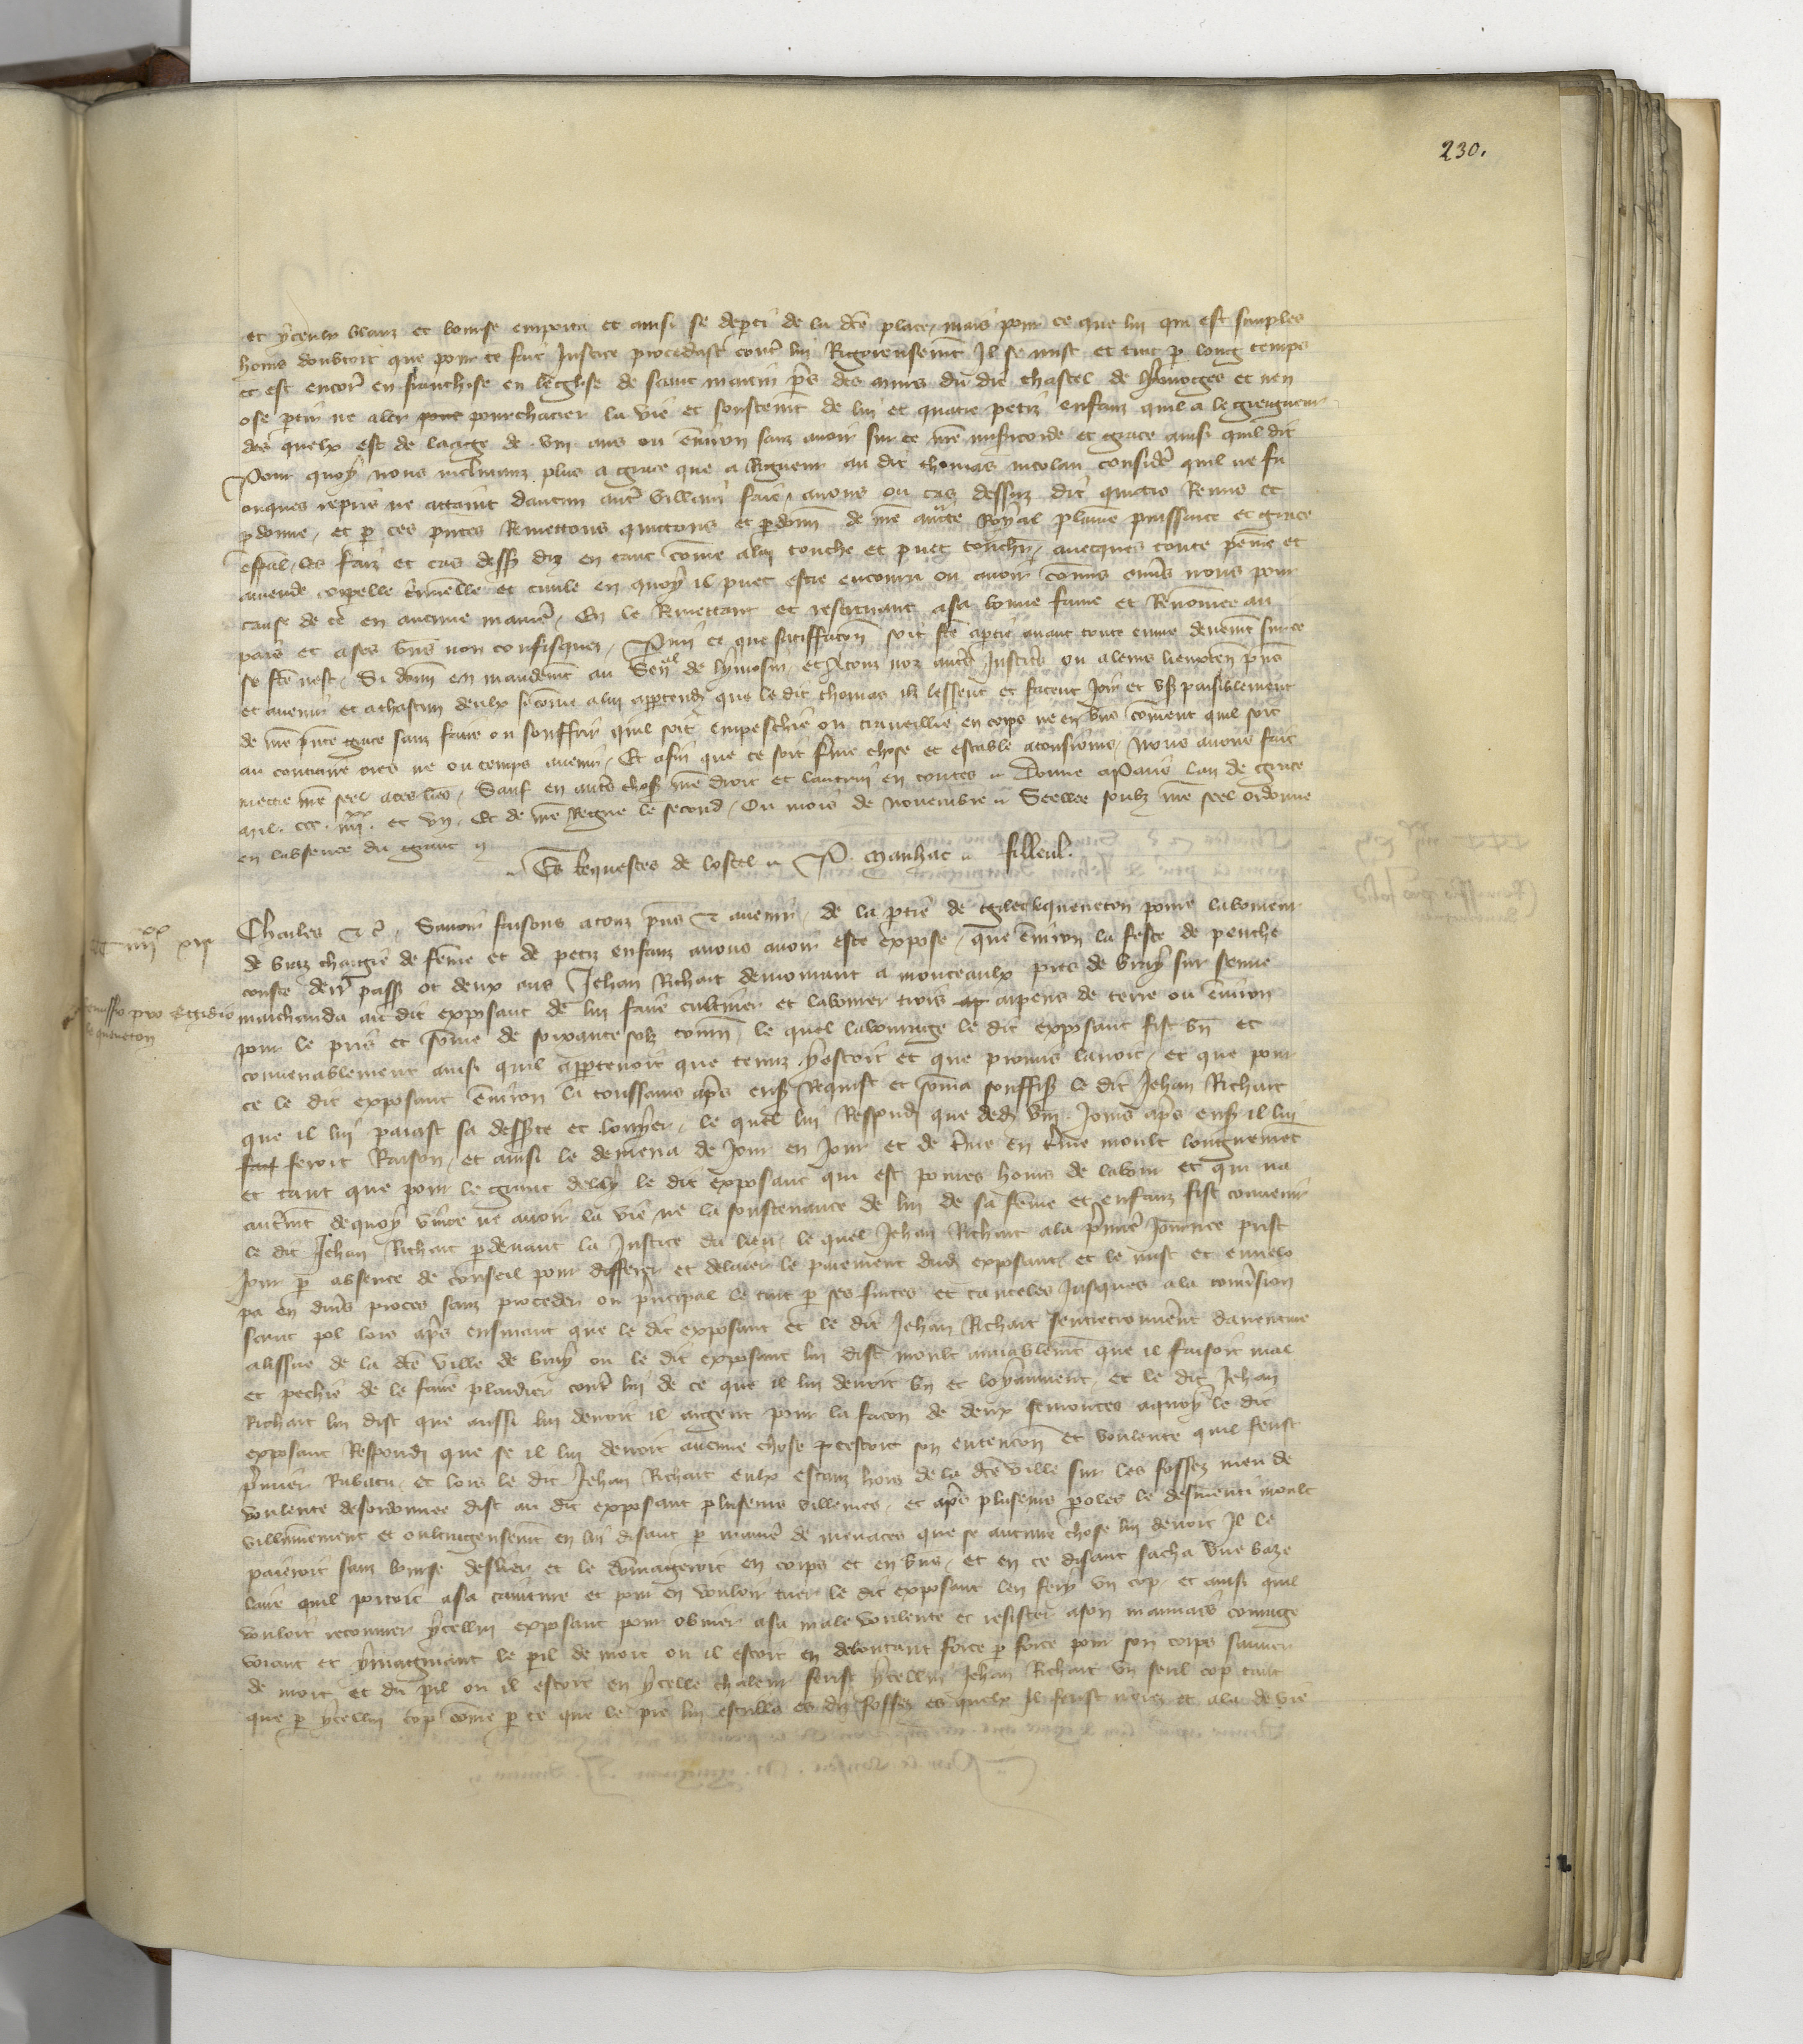 230.
et yceulx blans et bourse emporta et ainsi se depti de la dce place, mais pour ce que lui qui est simples
homs doubtoit que pour ce fait Justice procedast contr lui Rigoreusemt Il se mist et tint p long temps
et est encor en franchise en leglise de saint martin ps des murs du dit chastel de lymoges et nen
ose ptir ne aler pourchacier la vie et soustenmt de lui et quatre petiz enfanz quil a le greigneur
des quelx est de laaige de viii ans ou environ sanz avoir sur ce nre misicorde et grace ainsi quil dit
Pour quoy nous inclinanz plus a grace que a Rigueur au dit thomas nicolau considere quil ne fu
onques repris ne attaint daucun autre villain fait, avons ou cas dessuz dit quitie Remis et
pdonne, et p ces pntes Remettons quittons et pdonn de nre aucte Royal plaine puissance et grace
espal, les faiz et cas dess diz en tant come alui touche et puet touchr, avecques toute peine et
amende corpelle criminelle et civile en quoy il puet estre encouru ou avoir comis envs nous pour
cause de ce en aucune maniere, En le Remettant et restituant asa bonne fame et Renomee au
pais et ases bns non confisquez, Parmi ce que satiffacon soit fce aptie avant toute euvre devemt sur ce
se fce nest, Si donn en mandemt au Senal de lymosin, et a touz noz autrs Justiciers ou a leurs lieuxten pns
et avenir et achascun deulx si come a lui apptendr que le dit thomas ilz lessent et facent Joir et user paisiblement
de nre pnte grace sanz faire ou souffrir quil soit empeschie ou traveillie en corps ne en bns coment quil soit
au contraire ores ne ou temps avenir, Et afin que ce soit ferme chose et estable atousiours, Nous avons fait
mettre nre seel aces lres, Sauf en autrs choses nre droit et lautrui en toutes Donne aParis lan de grace
mil ccc iiiixx et un, Et de nre Regne le second, Ou mois de novembre Seellee soubz nre seel ordonne
en labsence du grant
Es Requestes de lostel P. Manhac filleul.
Charles &c, Savoir faisons a touz pns & avenir, de la ptie de Gilet lequeneton povre laboureur
de braz chargie de feme et de petiz enfanz avons avoir este expose, que environ la feste de penthe
couste derr passe ot deux ans Jehan Richart demorant a monceaulx pres de bray sur seine
marchanda au dit exposant de lui faire cultiver et labourer trois arpens de terre ou environ
pour le pris et some de soixante solz tourn, le quel labourage le dit exposant fist bn et
convenablement ainsi quil apptenoit que tenuz yestoit et que promis lavoit, et que pour
ce le dit exposant environ la toussains aps ens Requist et soma souffis le dit Jehan Richart
que il lui paiast sa desserte et louyer, le quel lui Respondi que dedens viii Jours aps ens il lui
feroit Raison, et ainsi le demena de Jour en Jour et de tme en tme moult longuement
et tant que pour le grant delay le dit exposant qui est povres homs de labour et qui na
autremt dequoy vivre ne avoir la vie ne la soustenance de lui de sa feme et enfanz fist convenir
le dit Jehan Richart pdevant la Justice du lieu, le quel Jehan Richart ala pmiere Journee prist
Jour p absence de conseil pour differer et delaier le paiement dud exposant, et le mist et envelo
pa en divs proces sanz proceder ou principal le tint p ses fuites et cauteles Jusques ala conversion
saint pol lors aps ensuivant que le dit exposant et le dit Jehan Richart sentretrouverent daventure
alissue de la dce ville de bray ou le dit exposant lui dist moult amiablemt que il faisoit mal
et pechie de le faire plaidier contr lui de ce que il lui devoit bn et loyaument, et le dit Jehan
Richart lui dist que aussi lui devoit il argent pour la facon de deux semonces aquoy le dit
exposant Respondi que se il lui devoit aucune chose ptestoit son entencon et voulente quil feust
pmier Rabatu, et lors le dit Jehan Richart eulx estanz hors de la dce ville sur les fossez meu de
voulente desordonnee dist au dit exposant pluseurs villenies, et aps pluseurs poles le desmenti moult
villainement et oultrageusemt en lui disant p manie de menaces que se aucune chose lui devoit Il le
paieroit sanz bourse deslier et le domageroit en corps et en bns, et en ce disant sacha une baze
laire quil portoit asa cainture et pour en vouloir tuer le dit exposant len fery un cop, et ainsi quil
vouloit recouvrer ycellui exposant pour obvier asa male voulente et resister ason mauvais courage
voiant et ymaginant le pil de mort ou il estoit en deboutant force p force pour son corps sauver
de mort et du pil ou il estoit en ycelle chaleur ferist ycellui Jehan Richart un seul cop tant
que p ycellui cop come p ce que le pie lui escrilla es diz fossez es quelx Il feust noiez et ala de vie
iiiixx xix
Remissio pro Egidio
le queneton